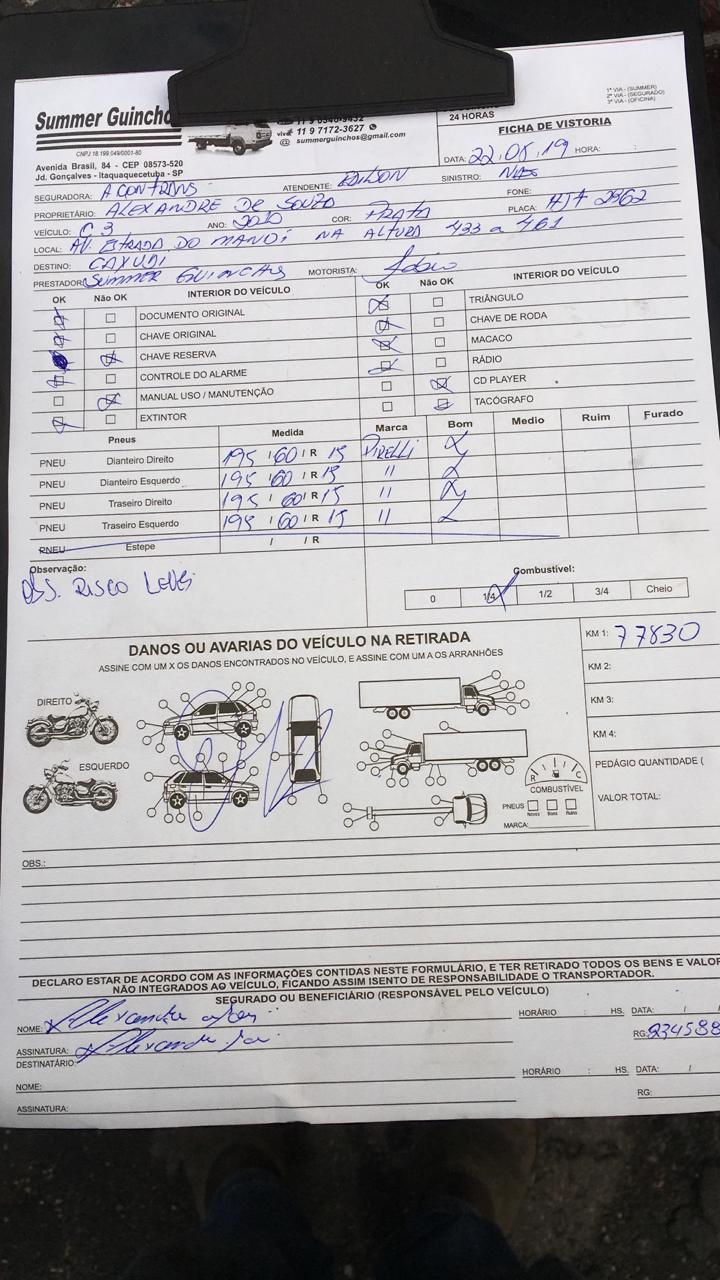 1ª VIA - (SUMMER)
2ª VIA - (SEGURADO)
3ª VIA - (OFICINA)
Summer Guincho
CNPJ 18.199.049/0001-80
Avenida Brasil, 84 - CEP 08573-520
Jd. Gonçalves - Itaquaquecetuba - SP
vivo 11 9 7172-3627
summerguinchos@gmail.com
24 HORAS
FICHA DE VISTORIA
DATA: 22.08.19 HORA: :
SEGURADORA: ATENDENTE: EDILSON SINISTRO:
PROPRIETÁRIO: ALEXANDRE DE SOUZA FONE:
VEÍCULO: C3 ANO: 2010 COR: PRATA PLACA:
LOCAL: AV. ESTRADA DO MANDI NA ALTURA 433 a 461
DESTINO:
PRESTADOR: SUMMER GUINCHOS MOTORISTA:
OK Não OK INTERIOR DO VEÍCULO OK Não OK INTERIOR DO VEÍCULO
DOCUMENTO ORIGINAL TRIÂNGULO
CHAVE ORIGINAL CHAVE DE RODA
CHAVE RESERVA MACACO
CONTROLE DO ALARME RÁDIO
MANUAL USO / MANUTENÇÃO CD PLAYER
EXTINTOR TACÓGRAFO
Pneus Medida Marca Bom Medio Ruim Furado
PNEU Dianteiro Direito 195 / 60 / R 15 PIRELLI X
PNEU Dianteiro Esquerdo 195 / 60 / R 15 " X
PNEU Traseiro Direito 195 / 60 / R 15 " X
PNEU Traseiro Esquerdo 195 / 60 / R 15 " X
PNEU Estepe / / R
Observação:
OBS. RISCO LEVES
Combustível:
0 1/4 1/2 3/4 Cheio
DANOS OU AVARIAS DO VEÍCULO NA RETIRADA
ASSINE COM UM X OS DANOS ENCONTRADOS NO VEÍCULO, E ASSINE COM UM A OS ARRANHÕES
KM 1: 77830
KM 2:
KM 3:
KM 4:
DIREITO
ESQUERDO
PEDÁGIO QUANTIDADE (
VALOR TOTAL:
R C
COMBUSTÍVEL
PNEUS
Novos Bons Ruins
MARCA:
OBS.:
DECLARO ESTAR DE ACORDO COM AS INFORMAÇÕES CONTIDAS NESTE FORMULÁRIO, E TER RETIRADO TODOS OS BENS E VALOR
NÃO INTEGRADOS AO VEÍCULO, FICANDO ASSIM ISENTO DE RESPONSABILIDADE O TRANSPORTADOR.
SEGURADO OU BENEFICIÁRIO (RESPONSÁVEL PELO VEÍCULO)
NOME: Alexandre HORÁRIO : HS. DATA: / /
ASSINATURA: Alexandre RG: 234588
DESTINATÁRIO:
HORÁRIO : HS. DATA: /
NOME:
RG:
ASSINATURA: